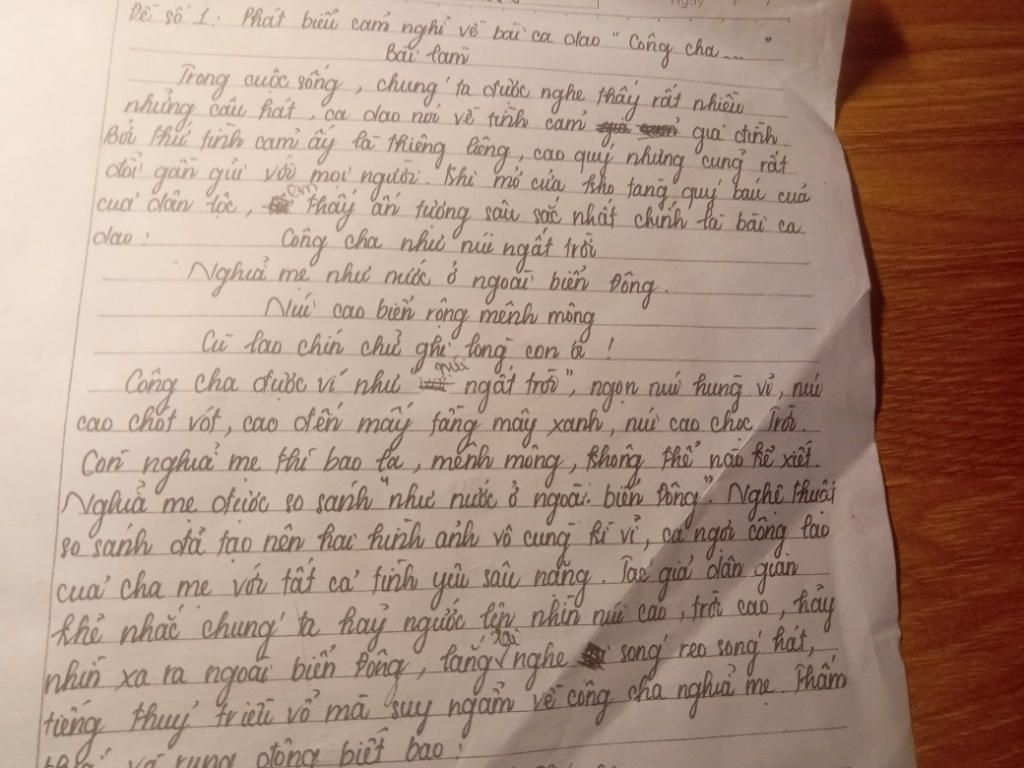 Đề số 1. Phát biểu cảm nghĩ về bài ca dao "Công cha ... "
Bài làm
Trong cuộc sống, chúng ta được nghe thấy rất nhiều
những câu hát, ca dao nói về tình cảm gia đình.
Bởi thứ tình cảm ấy là thiêng liêng, cao quý nhưng cũng rất
đỗi gần gũi với mọi người. Khi mở cửa kho tàng quý báu của
của dân tộc, em thấy ấn tượng sâu sắc nhất chính là bài ca
dao:
Công cha như núi ngất trời
Nghĩa mẹ như nước ở ngoài biển Đông.
Núi cao biển rộng mênh mông
Cù lao chín chữ ghi lòng con ơi!
Công cha được ví như núi ngất trời", ngọn núi hùng vĩ, núi
cao chót vót, cao đến mấy tầng mây xanh, núi cao chọc Trời.
Còn nghĩa mẹ thì bao la, mênh mông, không thể nào kể xiết.
Nghĩa mẹ được so sánh "như nước ở ngoài biển Đông". Nghệ thuật
so sánh đã tạo nên hai hình ảnh vô cùng kì vĩ, ca ngợi công lao
của cha mẹ với tất cả tình yêu sâu nặng. Tác giả dân gian
khẽ nhắc chúng ta hãy ngước lên nhìn núi cao, trời cao, hãy
nhìn xa ra ngoài biển Đông, lắng tai nghe sóng reo sóng hát,
tiếng thuỷ triều vỗ mà suy ngẫm về công cha nghĩa mẹ. Thấm
và rung động biết bao!